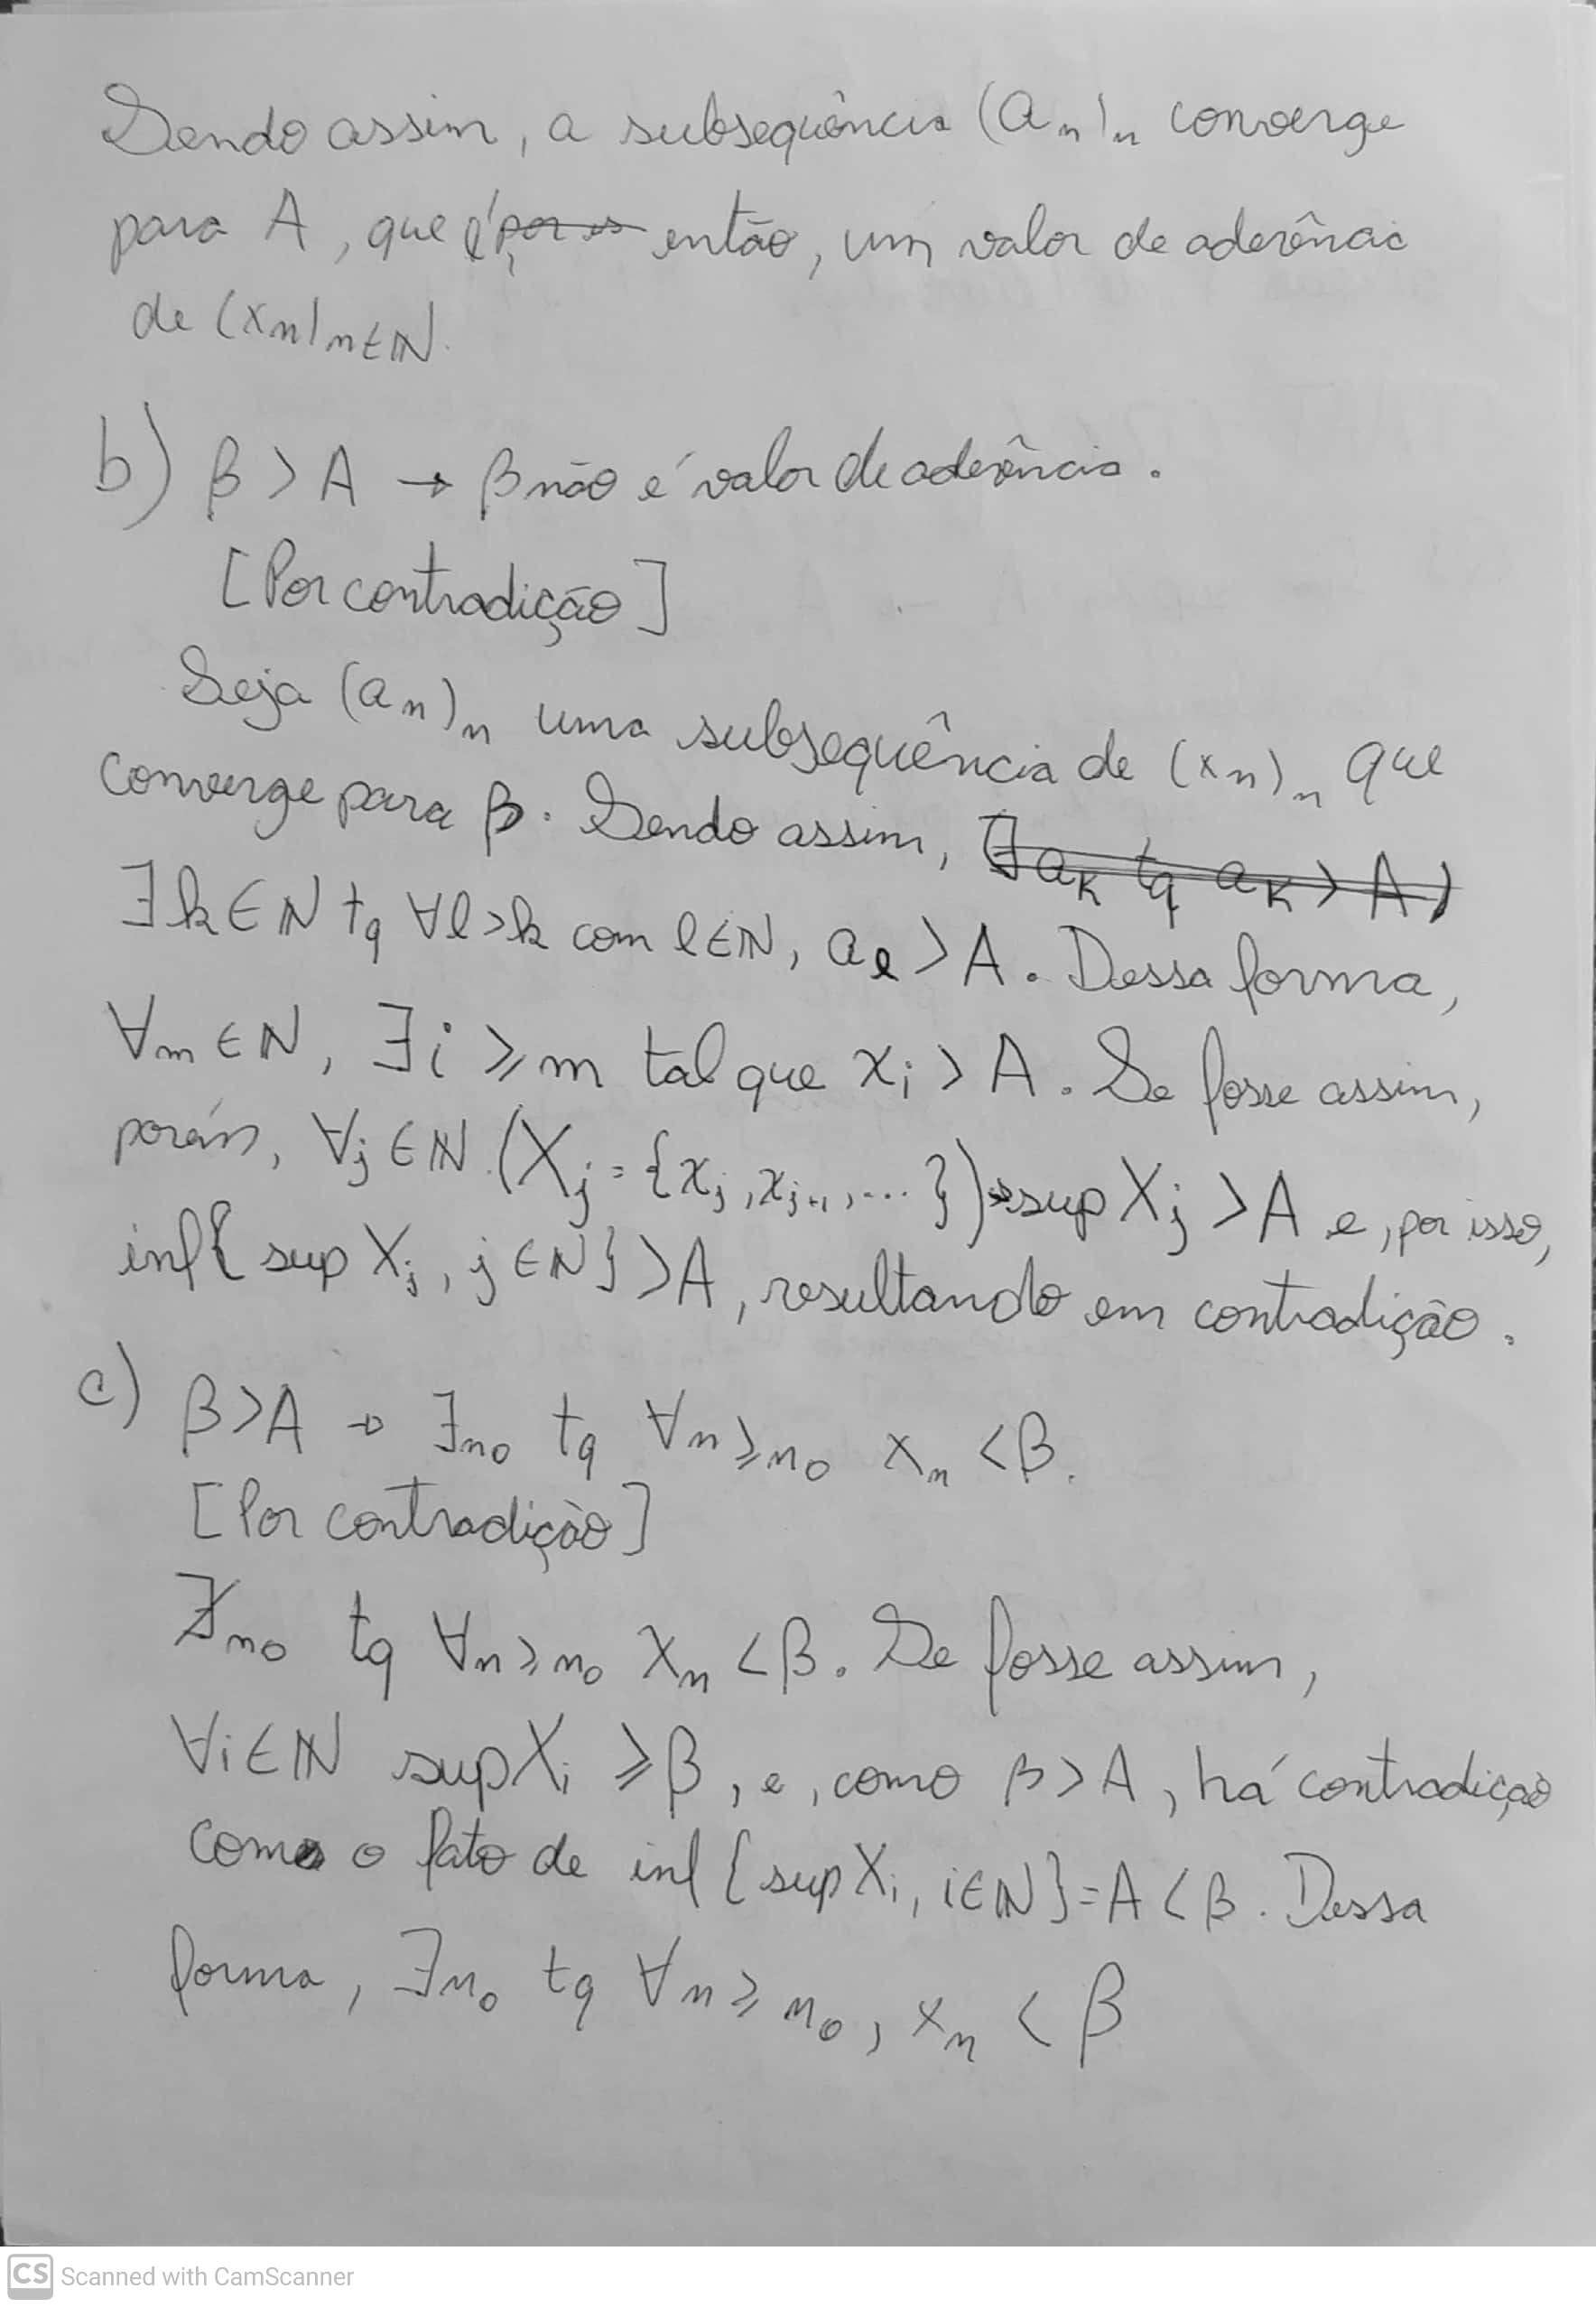 Sendo assim, a subsequência (aₙ)ₙ converge
para A, que é então, um valor de aderênac
de (xₙ)ₙ∈ℕ.
b) β > A → β não é valor de aderência.
[Por contradição]
Seja (aₙ)ₙ uma subsequência de (xₙ)ₙ que
converge para β. Sendo assim, (∃ aₖ tq aₖ > A)
∃k∈ℕ tq ∀l>k com l∈ℕ, aₗ > A. Dessa forma,
∀m∈ℕ, ∃i ≥ m tal que xᵢ > A. Se fosse assim,
porém, ∀j∈ℕ (Xⱼ = {xⱼ, xⱼ₊₁, ...}) → sup Xⱼ > A e, por isso,
inf{sup Xⱼ, j∈ℕ} > A, resultando em contradição.
c) β > A → ∃n₀ tq ∀n≥n₀ xₙ < β.
[Por contradição]
∄n₀ tq ∀n≥n₀ xₙ < β. Se fosse assim,
∀i∈ℕ sup Xᵢ ≥ β, e, como β > A, há contradição
com o fato de inf{sup Xᵢ, i∈ℕ} = A < β. Dessa
forma, ∃n₀ tq ∀n ≥ n₀, xₙ < β
CS Scanned with CamScanner